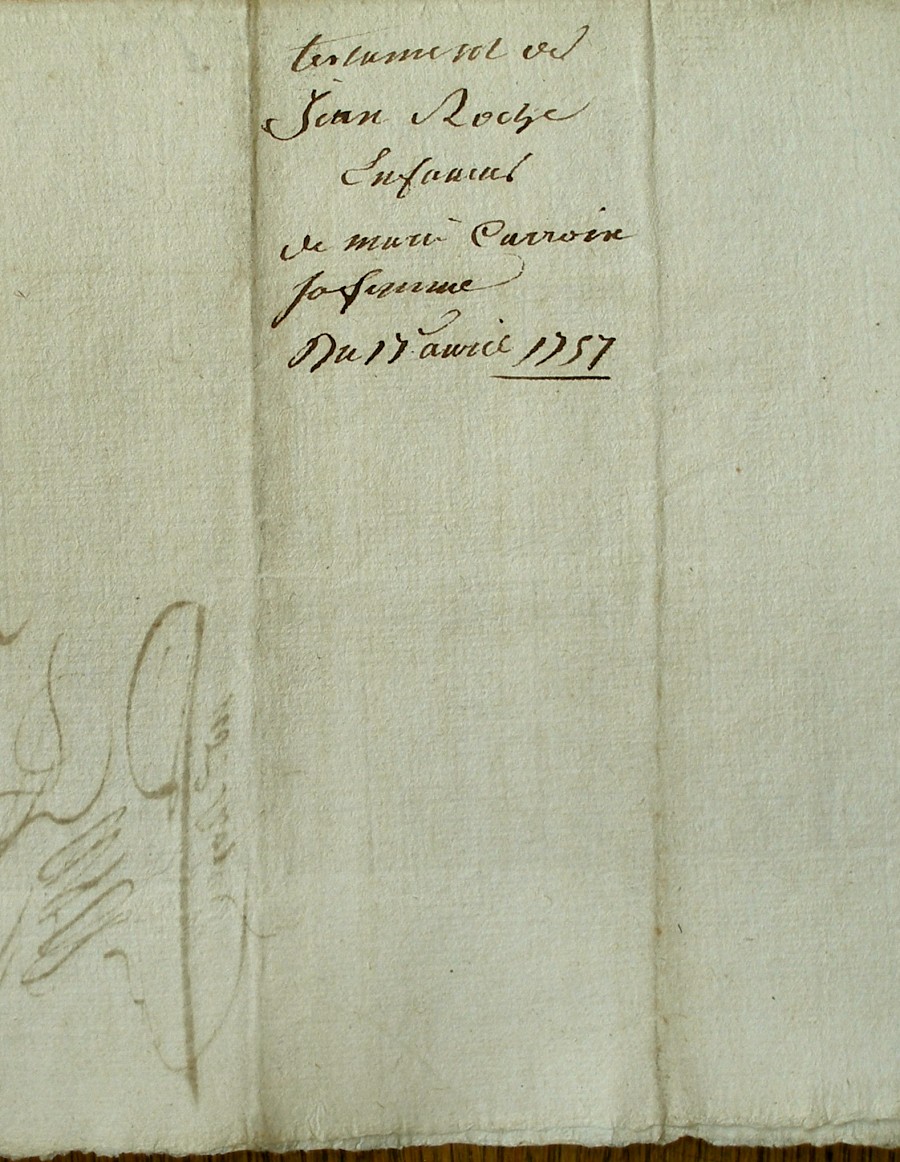 testament de
Jean Roche
Enfaveur
de marie Carroin
sa femme
Du 17 avril 1757